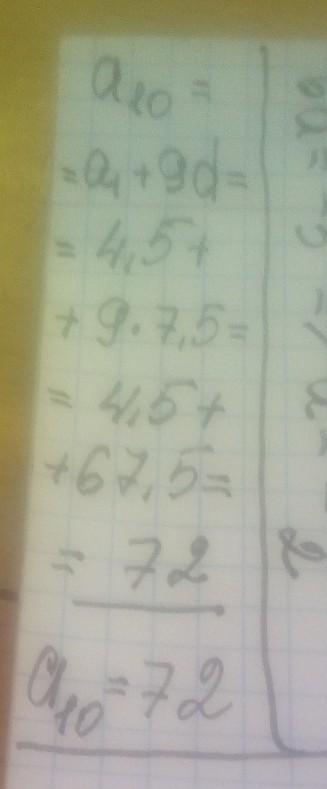 a₁₀ =
= a₁ + 9d =
= 4,5 +
+ 9 · 7,5 =
= 4,5 +
+ 67,5 =
= 72
a₁₀ = 72